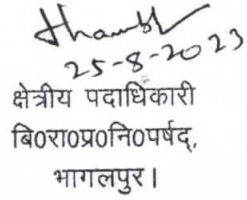 25-8-2023
क्षेत्रीय पदाधिकारी
बि0रा0प्र0नि0पर्षद्,
भागलपुर।